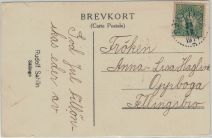 BREVKORT
(Carte Postale)
God Jul tillön-
skas eder av
Rudolf Sahlin
Fröken
Anna-Lisa Haglund
Oppboga
Fellingsbro